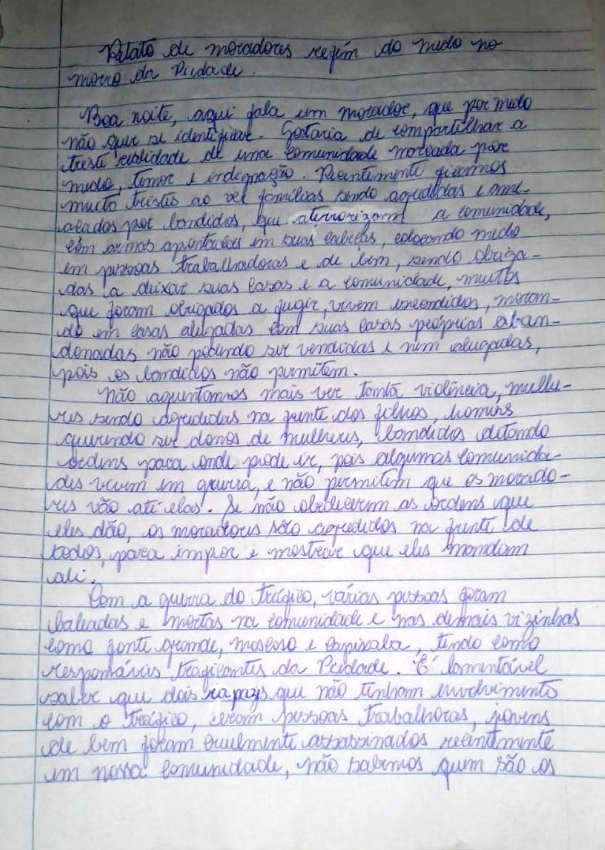 Relato de moradores refém do medo no
morro da Piedade.
Boa noite, aqui fala um morador, que por medo
não quer se identificar. Gostaria de compartilhar a
triste realidade de uma comunidade marcada por
medo, temor e indignação. Recentemente ficamos
muito tristes ao ver famílias sendo agredidas e ame-
açadas por bandidos, que aterrorizam a comunidade,
com armas apontadas em suas cabeças, colocando medo
em pessoas trabalhadoras e de bem, sendo obriga-
das a deixar suas casas e a comunidade, muitos
que foram obrigados a fugir, vivem escondidos, moran-
do em casas alugadas com suas casas próprias aban-
donadas não podendo ser vendidas e nem alugadas,
pois os bandidos não permitem.
Não aguentamos mais ver tanta violência, mulhe-
res sendo agredidas na frente dos filhos, homens
querendo ser donos de mulheres, bandidos ditando
ordens para onde pode ir, pois algumas comunida-
des vivem em guerra, e não permitem que os morado-
res vão até elas. Se não obedecerem as ordens que
eles dão, os moradores são agredidos na frente de
todos, para impor e mostrar que eles mandam
ali.
Com a guerra do tráfico, várias pessoas foram
baleadas e mortas na comunidade e nas demais vizinhas
como fonte grande, moscoso e capixaba, tendo como
responsáveis traficantes da Piedade. É lamentável
saber que dois rapazs que não tinham envolvimento
com o tráfico, eram pessoas trabalhoras, jovens
de bem foram cruelmente assassinados recentemente
em nossa comunidade, não sabemos quem são os